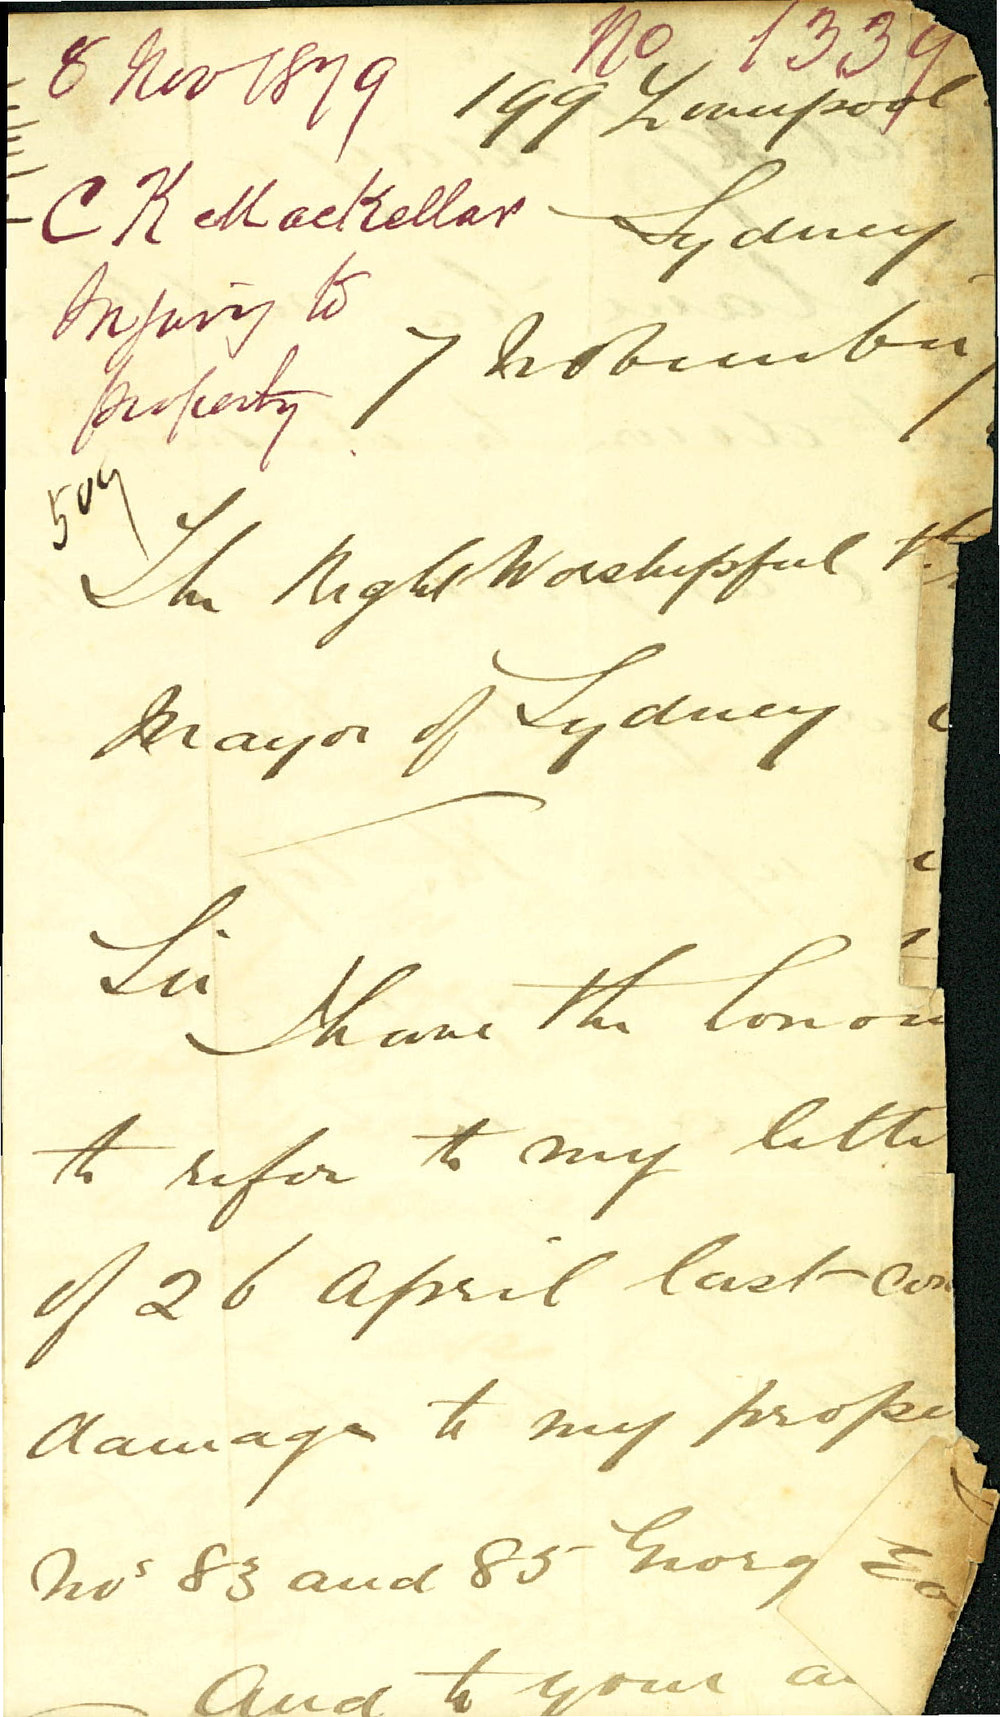 8 Nov 1879
No 1339
199 Liverpool
C K MacKellar
Sydney
Injury to
property
7 November
509
The Right Worshipful the
Mayor of Sydney
Sir
I have the honou
to refer to my lette
of 26 April last con
damage to my prope
Nos 83 and 85 Georg
And to your an